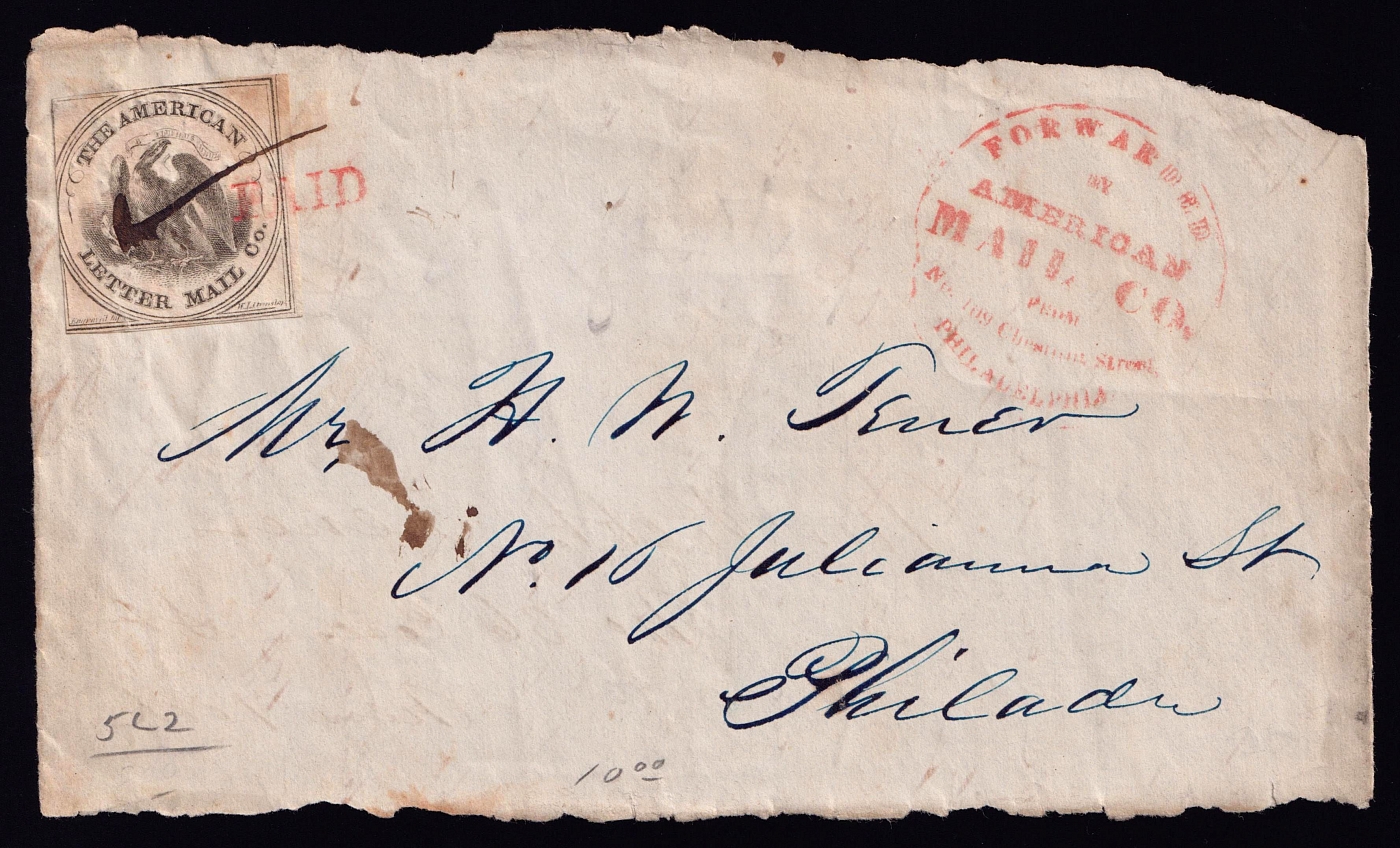 THE AMERICAN
LETTER MAIL Co.
PAID
FORWARDED
BY
AMERICAN
MAIL CO.
FROM
No. 109 Chesnut Street,
PHILADELPHIA
Mr, H. N. Tener
No. 16 Julianna St
Philada
5L2
10 00